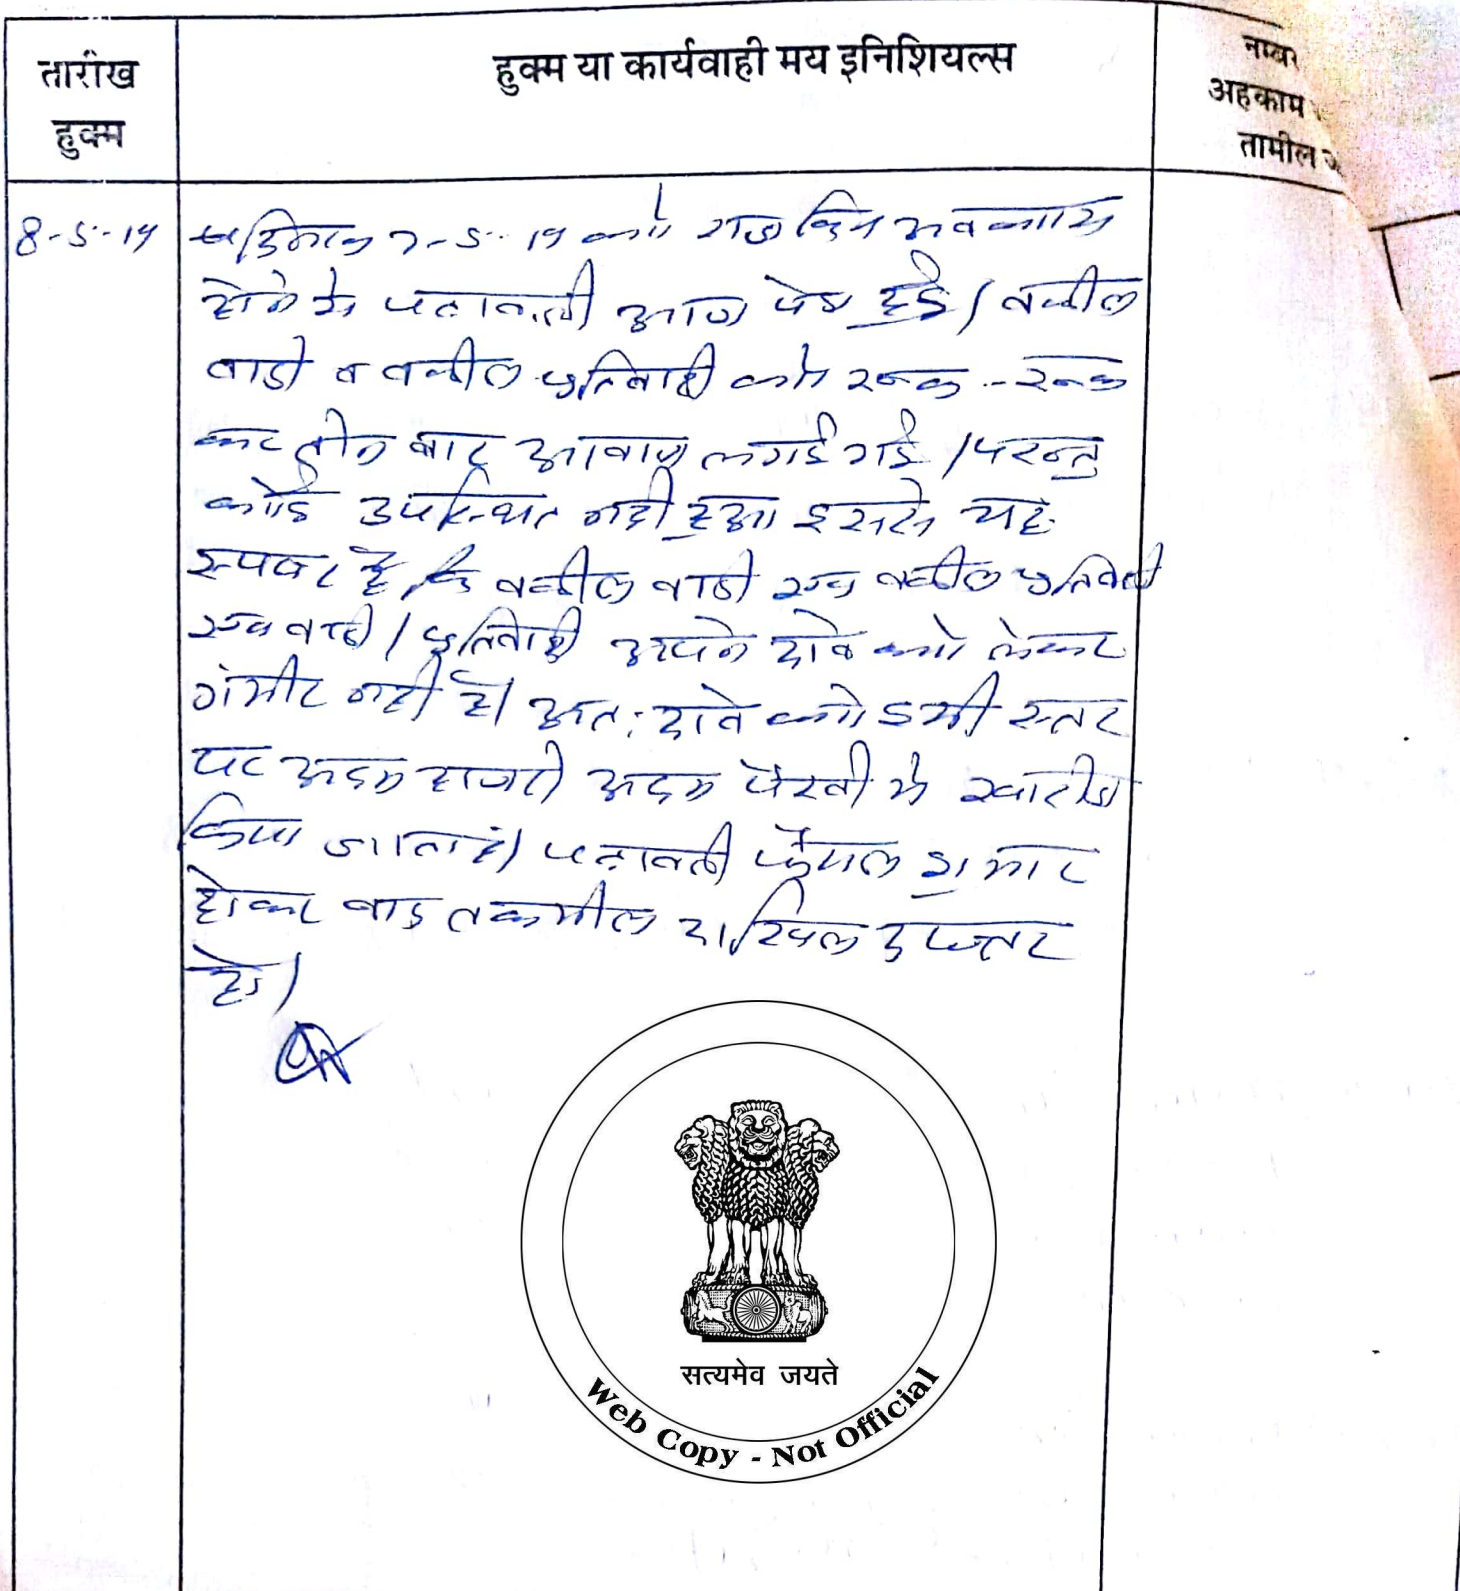 तारीख
हुक्म
हुक्म या कार्यवाही मय इनिशियल्स
नम्बर
अहकाम
तामील
8-5-19
दिनांक 7-5-19 को राज अवकाश
होने से पत्रावली आज पेश हुई। वकील
वादी व वकील प्रतिवादी को रूक-रूक
कर तीन बार आवाज लगाई गई। परन्तु
कोई उपस्थित नही हुआ इससे यह
स्पष्ट है कि वकील वादी एवं वकील प्रतिवादी
एवं वादी/प्रतिवादी अपने दावे को लेकर
गंभीर नही है। अतः दावे को इसी स्तर
पर अदम हाजरी अदम पैरवी मे खारीज
किया जाता है। पत्रावली फैसल शुमार
होकर बाद तकमील दाखिल दफ्तर
हो।
सत्यमेव जयते
Web Copy - Not Official